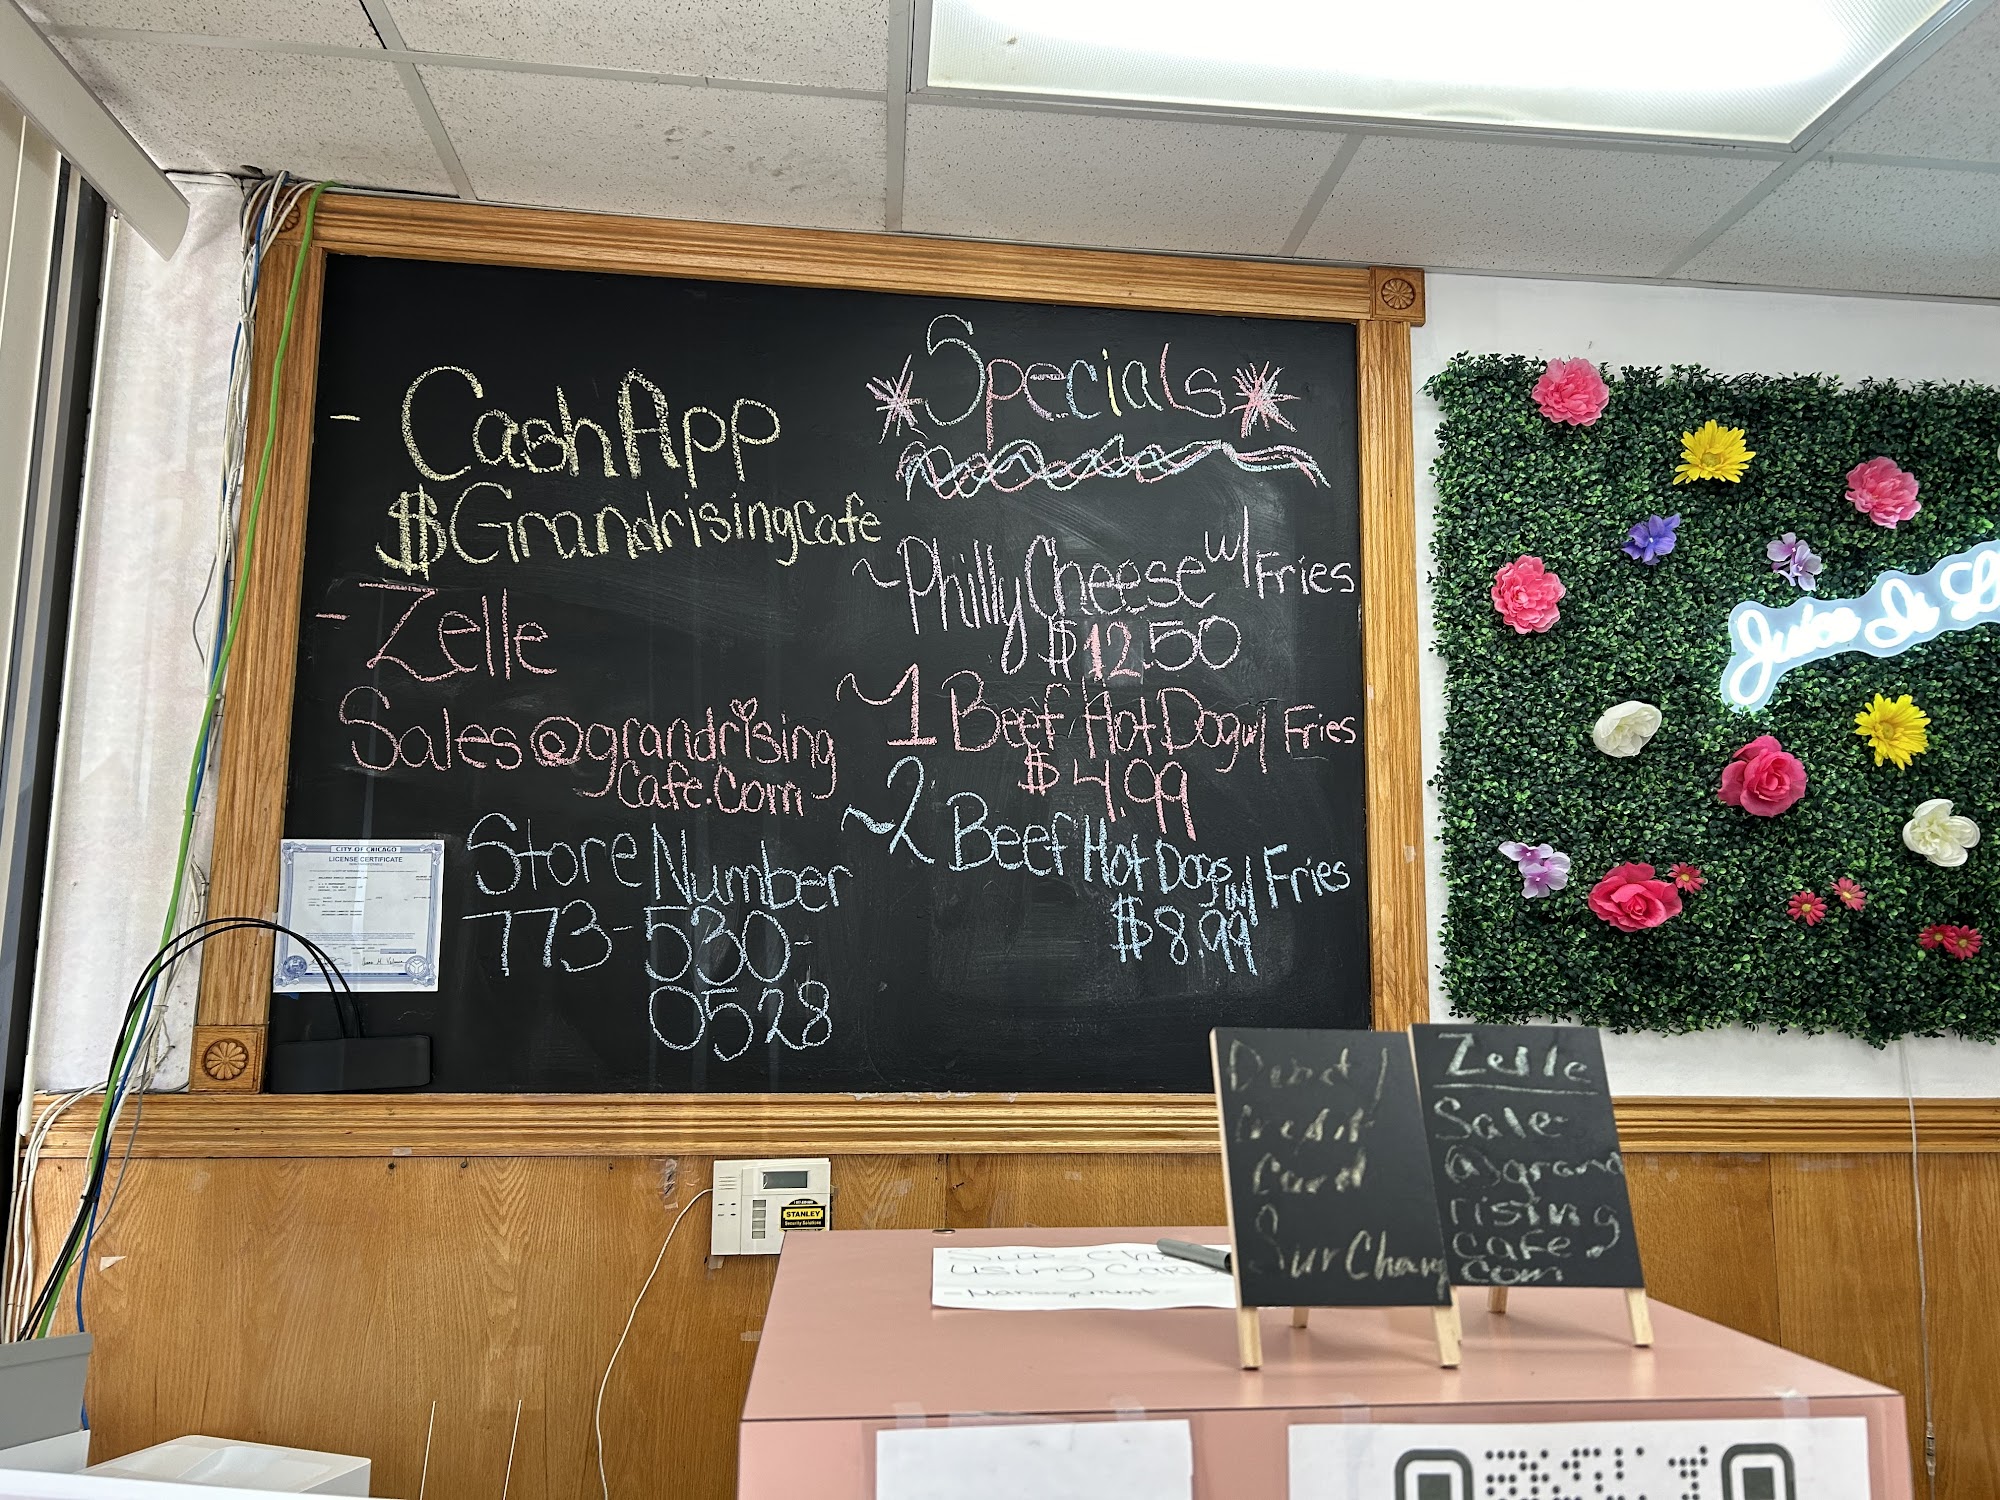 - CashApp
$Grandrisingcafe
- Zelle
Sales@grandrising
cafe.com
Store Number
773-530-
0528
*Specials*
~Philly Cheese w/ Fries
$12.50
~1 Beef Hot Dog w/ Fries
$4.99
~2 Beef Hot Dogs w/ Fries
$8.99
CITY OF CHICAGO
LICENSE CERTIFICATE
Juice Is
STANLEY
Security Solutions
Using Card
-Management-
Credit
Card
Zelle
Sale-
@grand
rising
cafe.
com